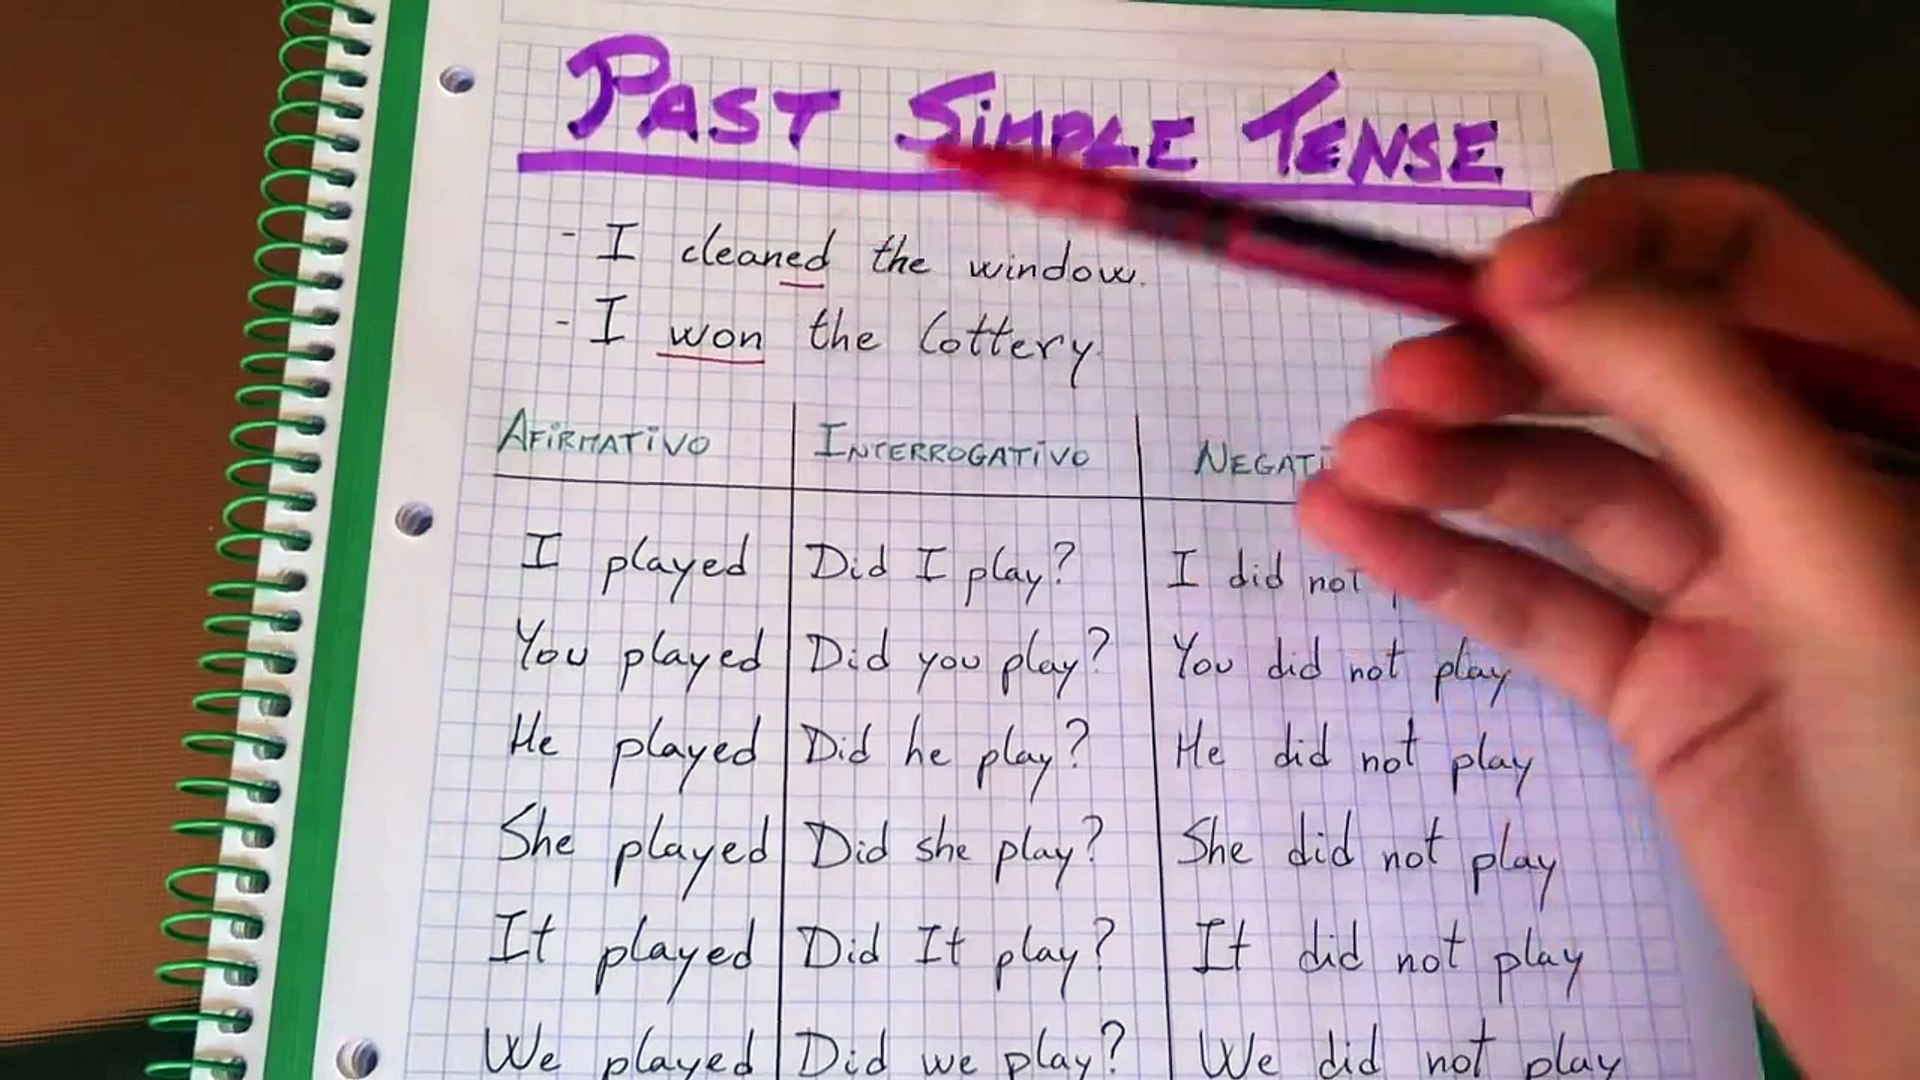 PAST SIMPLE TENSE
- I cleaned the window.
- I won the lottery
AFIRMATIVO INTERROGATIVO
I played Did I play? I did not
You played Did you play? You did not play
He played Did he play? He did not play
She played Did she play? She did not play
It played Did It play? It did not play
We played Did we play? We did not play